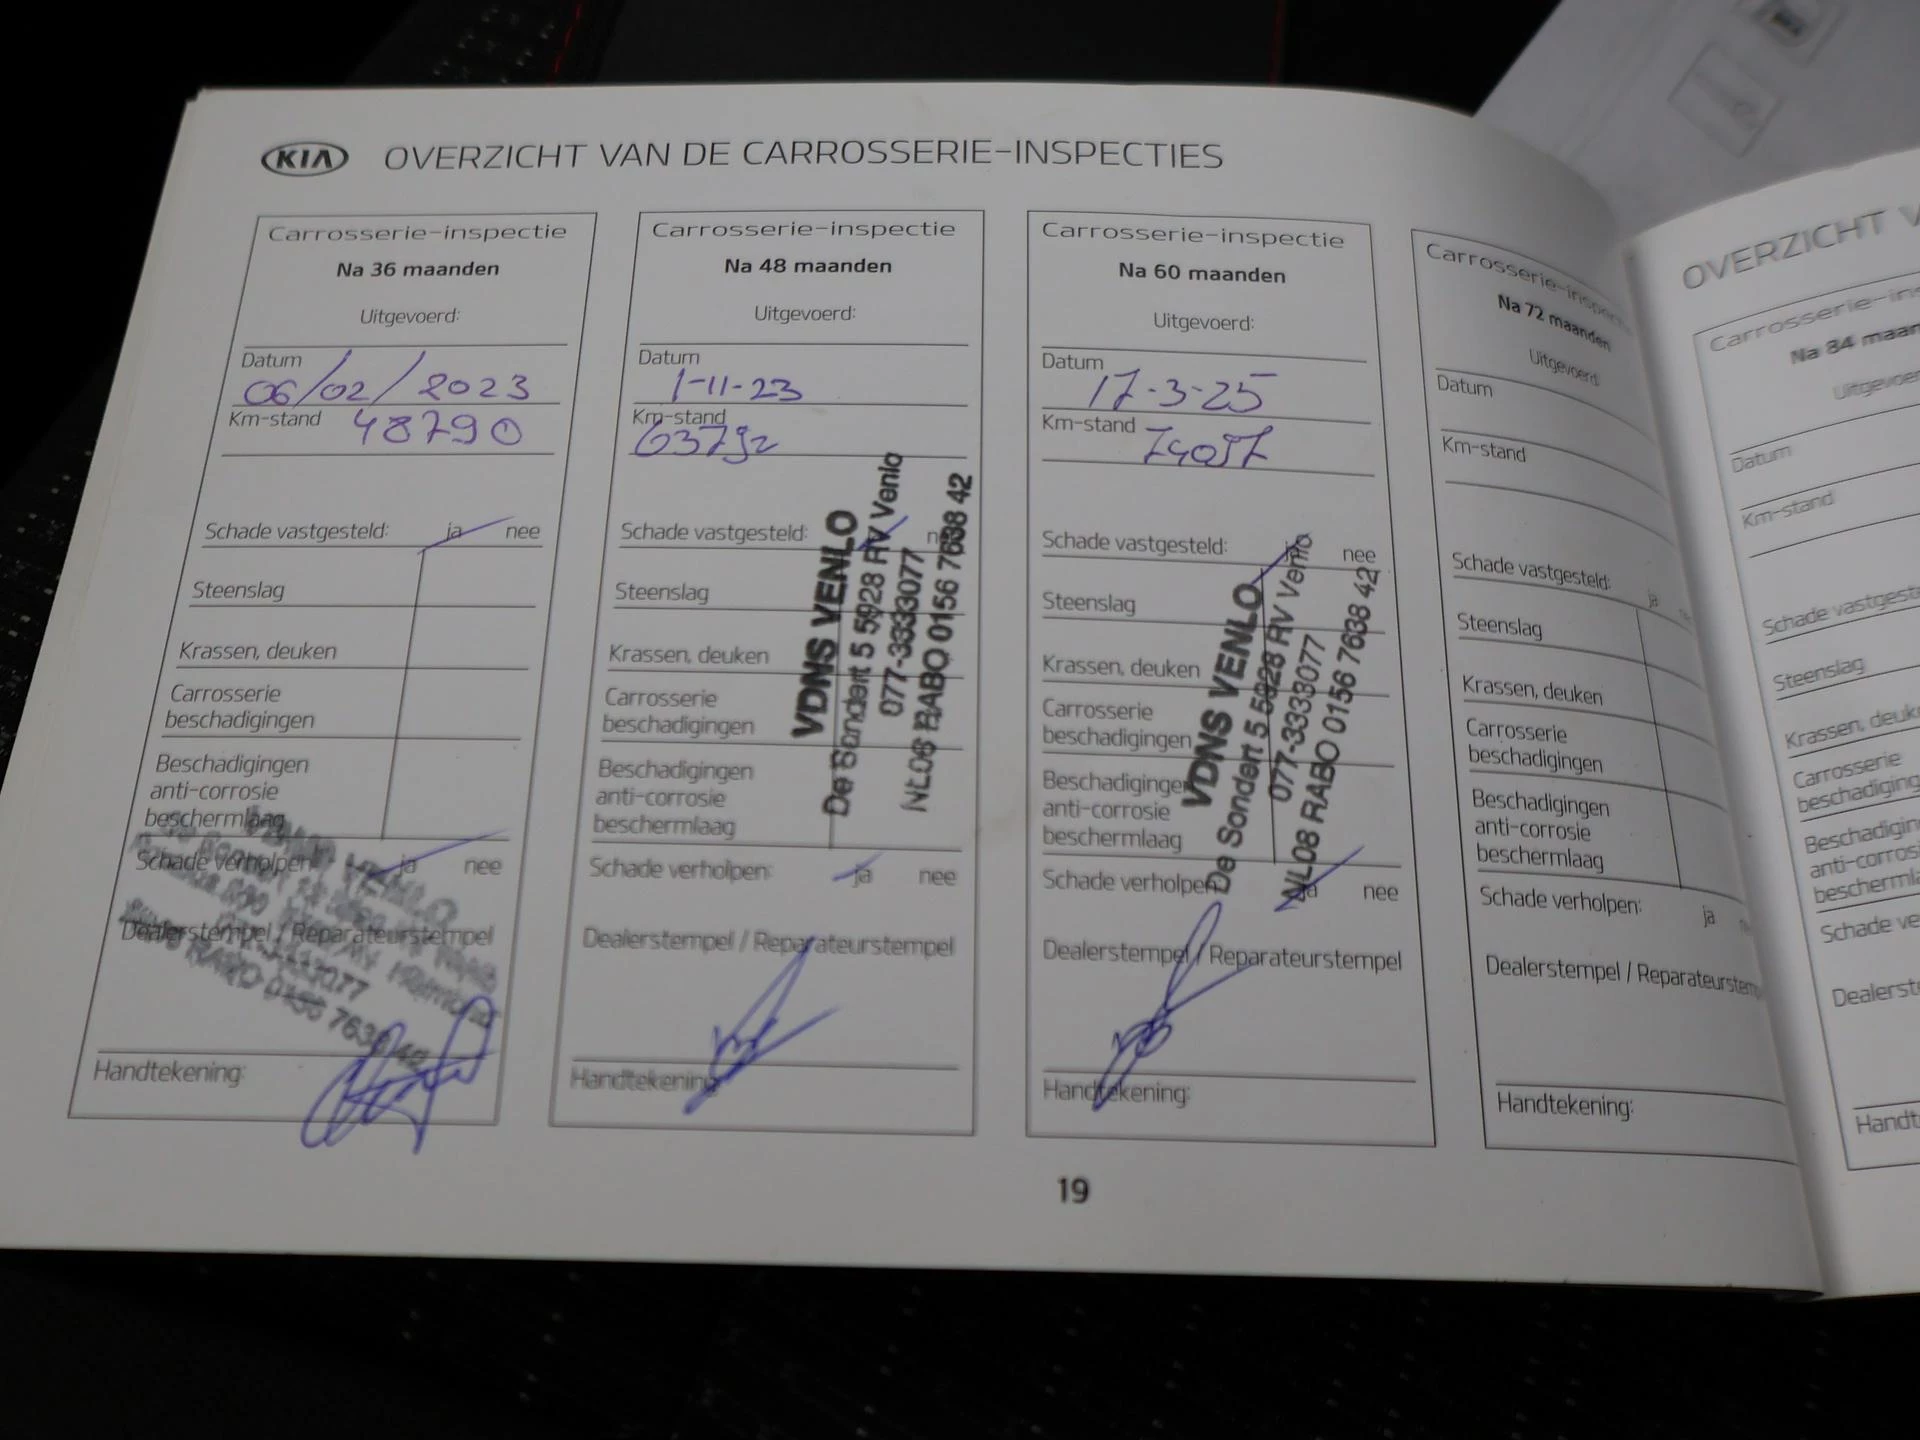 KIA OVERZICHT VAN DE CARROSSERIE-INSPECTIES
Carrosserie-inspectie
Na 36 maanden
Uitgevoerd:
Datum
06/02/2023
Km-stand 48790
Schade vastgesteld: ja nee
Steenslag
Krassen, deuken
Carrosserie
beschadigingen
Beschadigingen
anti-corrosie
beschermlaag
Schade verholpen ja nee
Dealerstempel / Reparateurstempel
Handtekening:
Carrosserie-inspectie
Na 48 maanden
Uitgevoerd:
Datum
1-11-23
Km-stand
63792
Schade vastgesteld:
Steenslag
Krassen, deuken
Carrosserie
beschadigingen
Beschadigingen
anti-corrosie
beschermlaag
VDNS VENLO
De Sondert 5 5928 RV Venlo
077-3333077
NL08 RABO 0156 7638 42
Schade verholpen: ja nee
Dealerstempel / Reparateurstempel
Handtekening
Carrosserie-inspectie
Na 60 maanden
Uitgevoerd:
Datum
17-3-25
Km-stand 74057
Schade vastgesteld: nee
Steenslag
Krassen, deuken
Carrosserie
beschadigingen
Beschadigingen
anti-corrosie
beschermlaag
VDNS VENLO
De Sondert 5 5928 RV Venlo
077-3333077
NL08 RABO 0156 7638 42
Schade verholpen ja nee
Dealerstempel / Reparateurstempel
Handtekening:
Carrosserie-inspectie
Na 72 maanden
Uitgevoerd:
Datum
Km-stand
Schade vastgesteld:
ja
Steenslag
Krassen, deuken
Carrosserie
beschadigingen
Beschadigingen
anti-corrosie
beschermlaag
Schade verholpen: ja
Dealerstempel / Reparateurstem
Handtekening:
19
OVERZICHT V
Carrosserie-ins
Na 84 maan
Uitgevoer
Datum
Km-stand
Schade vastgeste
Steenslag
Krassen, deuk
Carrosserie
beschadiging
Beschadigin
anti-corros
bescherml
Schade ve
Dealerst
Handt